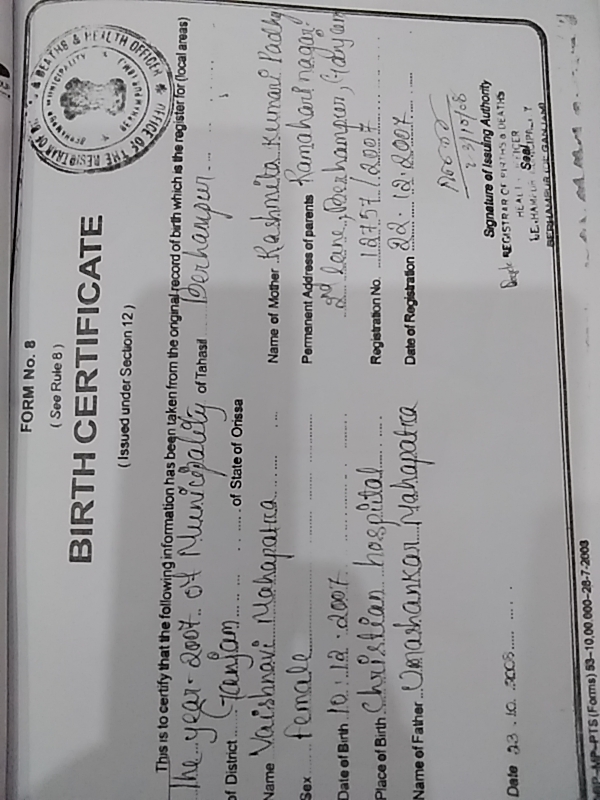 FORM No. 8
( See Rule 8 )
BIRTH CERTIFICATE
( Issued under Section 12 )
OFFICE OF THE REGISTRAR OF BIRTHS & DEATHS & HEALTH OFFICER
BERHAMPUR MUNICIPALITY
This is to certify that the following information has been taken from the original record of birth which is the register for (local areas)
The year 2007 of Municipality of Tahasil Berhampur
of District Ganjam of State of Orissa
Name Vaishnavi Mahapatra
Name of Mother Rashmita Kumari Padhy
Sex female
Permanent Address of parents Ramahari nagar
2nd lane, Berhampur, Ganjam
Date of Birth 10.12.2007
Place of Birth Christian hospital
Registration No. 12757/2007
Name of Father Umashankar Mahapatra
Date of Registration 22.12.2007
23/10/08
Signature of Issuing Authority
REGISTRAR OF BIRTHS & DEATHS
Seal
Date 23.10.2008
PTS (Forms) 53-10,00,000-28-7-2003